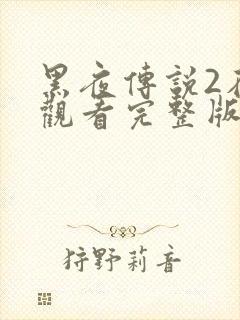 黑夜傳説2在
觀看完整版
狩野莉音